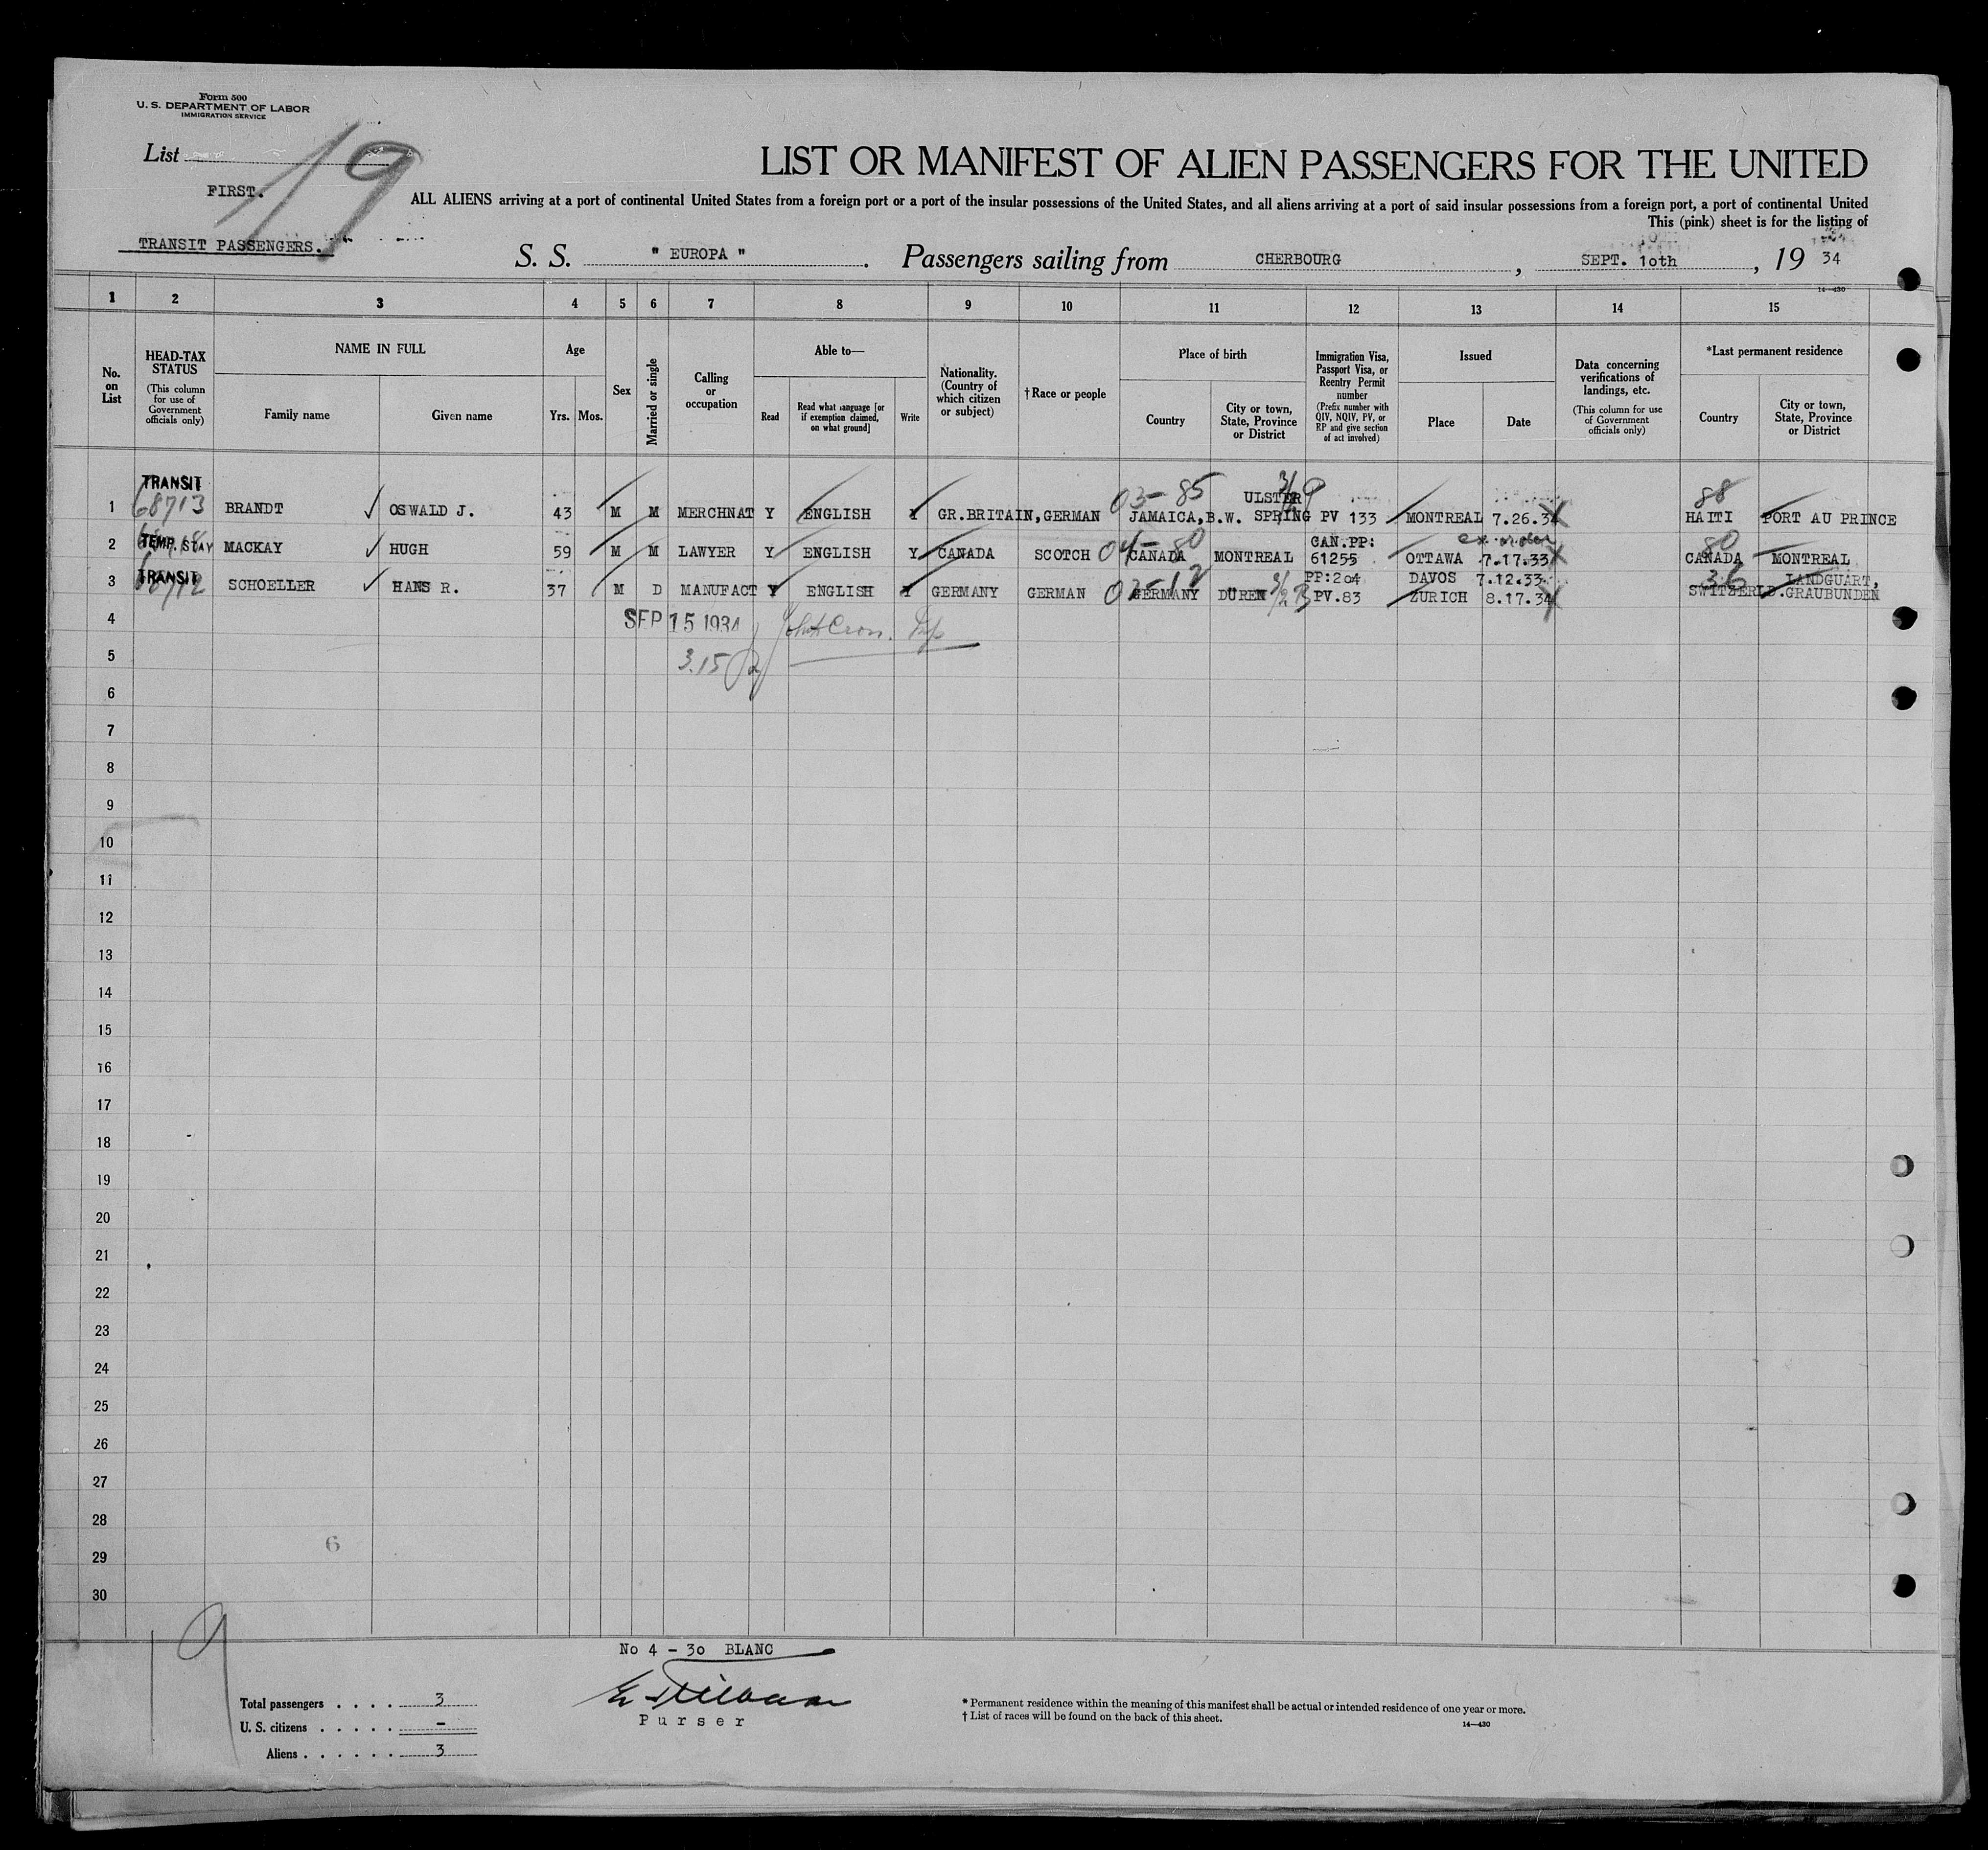 Form 500
U. S. DEPARTMENT OF LABOR
IMMIGRATION SERVICE
List 19
FIRST.
TRANSIT PASSENGERS.
LIST OR MANIFEST OF ALIEN PASSENGERS FOR THE UNITED
ALL ALIENS arriving at a port of continental United States from a foreign port or a port of the insular possessions of the United States, and all aliens arriving at a port of said insular possessions from a foreign port, a port of continental United
This (pink) sheet is for the listing of
S. S. " EUROPA ". Passengers sailing from CHERBOURG, SEPT. 10th, 19 34
14-430
1 2 3 4 5 6 7 8 9 10 11 12 13 14 15
No. on List
HEAD-TAX STATUS (This column for use of Government officials only)
NAME IN FULL
Family name Given name
Age
Yrs. Mos.
Sex
Married or single
Calling or occupation
Able to—
Read Read what language [or if exemption claimed, on what ground] Write
Nationality. (Country of which citizen or subject)
† Race or people
Place of birth
Country City or town, State, Province or District
Immigration Visa, Passport Visa, or Reentry Permit number (Prefix number with QIV, NQIV, PV, or RP and give section of act involved)
Issued
Place Date
Data concerning verifications of landings, etc. (This column for use of Government officials only)
*Last permanent residence
Country City or town, State, Province or District
TRANSIT 03-85 ULSTER 88
1 68713 BRANDT OSWALD J. 43 M M MERCHNAT Y ENGLISH Y GR.BRITAIN, GERMAN JAMAICA, B.W. SPRING PV 133 MONTREAL 7.26.34 HAITI PORT AU PRINCE
04-80 CAN.PP: 80
2 TEMP. STAY MACKAY HUGH 59 M M LAWYER Y ENGLISH Y CANADA SCOTCH CANADA MONTREAL 61255 OTTAWA 7.17.33 CANADA MONTREAL
TRANSIT PP:204 DAVOS 7.12.33 36 LANDGUART,
3 68712 SCHOELLER HANS R. 37 M D MANUFACT Y ENGLISH Y GERMANY GERMAN GERMANY DUREN PV.83 ZURICH 8.17.34 SWITZERLD. GRAUBUNDEN
4 SEP 15 1934
5 3.15
6
7
8
9
10
11
12
13
14
15
16
17
18
19
20
21
22
23
24
25
26
27
28
29
30
6
19
No 4 - 30 BLANC
Purser
Total passengers . . . . 3
U. S. citizens . . . . . -
Aliens . . . . . . 3
* Permanent residence within the meaning of this manifest shall be actual or intended residence of one year or more.
† List of races will be found on the back of this sheet.
14-430